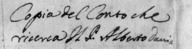 Copia del Conto che
ricerca Il S. Alberto